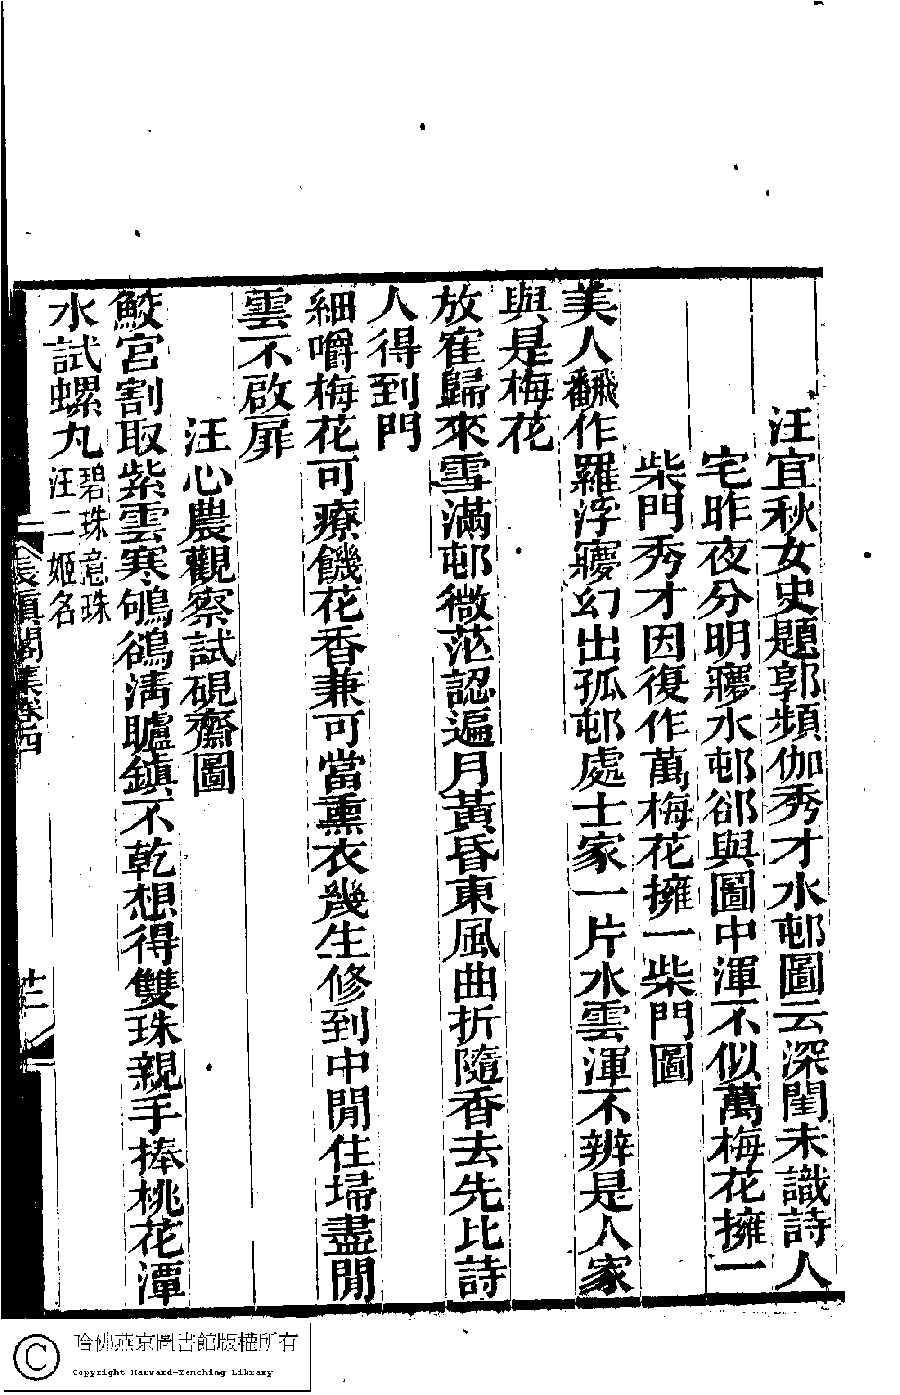 汪宜秋女史題郭頻伽秀才水邨圖云深閨未識詩人
宅昨夜分明㝱水邨郤與圖中渾不似萬梅花擁一
柴門秀才因復作萬梅花擁一柴門圖
美人翻作羅浮㝱幻出孤邨處士家一片水雲渾不辨是人家
與是梅花
放隺歸來雪滿邨微茫認遍月黃昏東風曲折隨香去先比詩
人得到門
細嚼梅花可療饑花香兼可當熏衣幾生修到中閒住埽盡閒
雲不啟扉
汪心農觀察試硯齋圖
鮫宮割取紫雲寒鴝鵒淸矑鎮不乾想得雙珠親手捧桃花潭
水試螺丸碧珠意珠
汪二姬名
長眞閣集卷四
十二
哈佛燕京圖書館版權所有
Copyright Harvard-Yenching Library